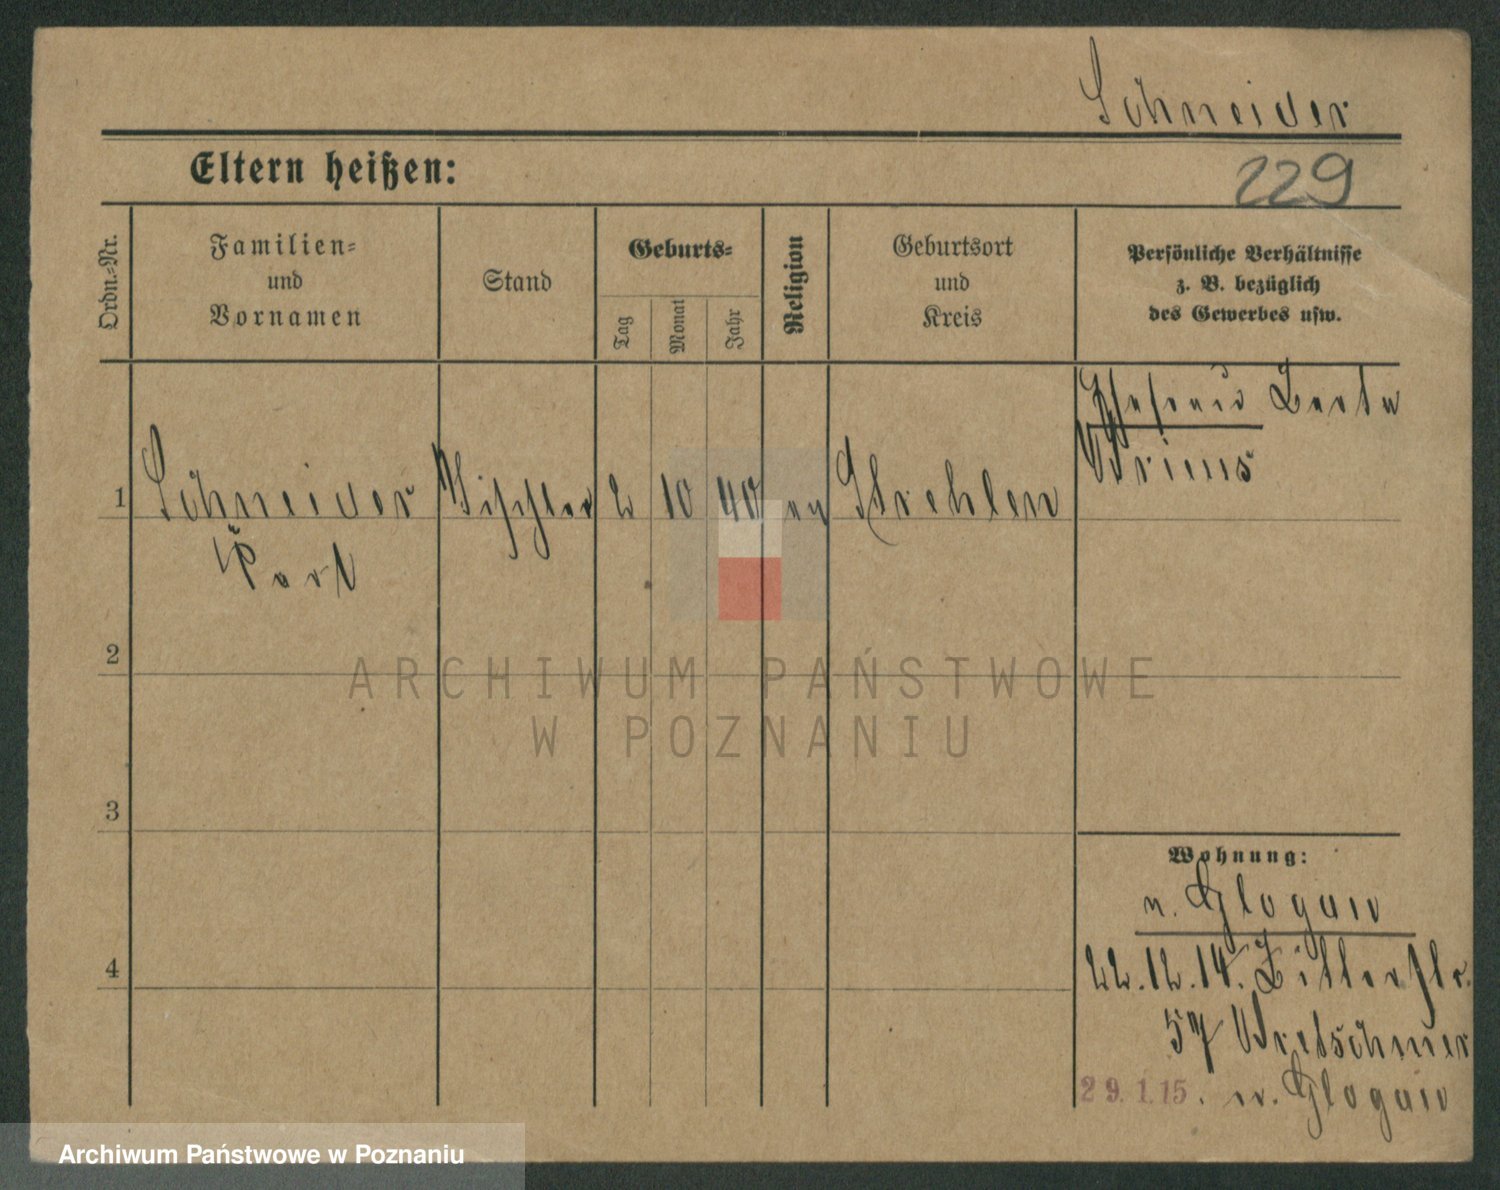 Schneider
Eltern heißen:
229
Ordn.-Nr.
Familien-
und
Vornamen
Stand
Geburts-
Tag
Monat
Jahr
Religion
Geburtsort
und
Kreis
Persönliche Verhältnisse
z. B. bezüglich
des Gewerbes usw.
1
Schneider
Tischler
2
10
40
ev
Strehlen
Ehefrau
2
3
4
ARCHIWUM PAŃSTWOWE
W POZNANIU
Wohnung:
n. Glogau
22.12.14.
57 Kretschmer
29.1.15. n. Glogau
Archiwum Państwowe w Poznaniu